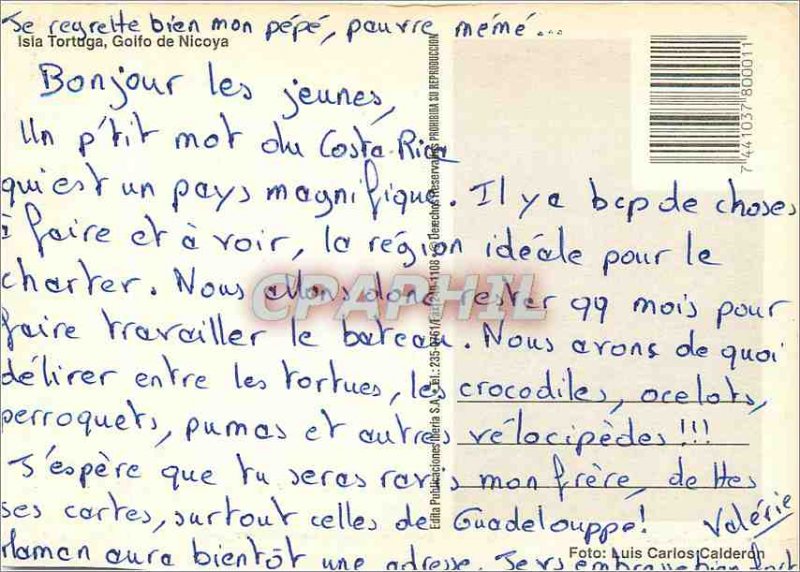 Je regrette bien mon pépé, pauvre mémé...
Isla Tortuga, Golfo de Nicoya
Bonjour les jeunes,
Un p'tit mot du Costa Rica
qui est un pays magnifique. Il y a bcp de choses
à faire et à voir, la région idéale pour le
charter. Nous allons donc rester qq mois pour
faire travailler le bateau. Nous avons de quoi
délirer entre les tortues, les crocodiles, ocelots,
perroquets, pumas et autres vélocipèdes !!!
J'espère que tu seras ravis mon frère, de ttes
ses cartes, surtout celles de Guadelouppe! Valérie
Maman aura bientôt une adresse. Je vs embrasse bien fort
Foto: Luis Carlos Calderón
Edita Publicaciones Iberia S.A. • Tel.: 235-0761/Fax: 240-1108 • © Derechos Reservados PROHIBIDA SU REPRODUCCION
7 441037 800011
CPAPHIL